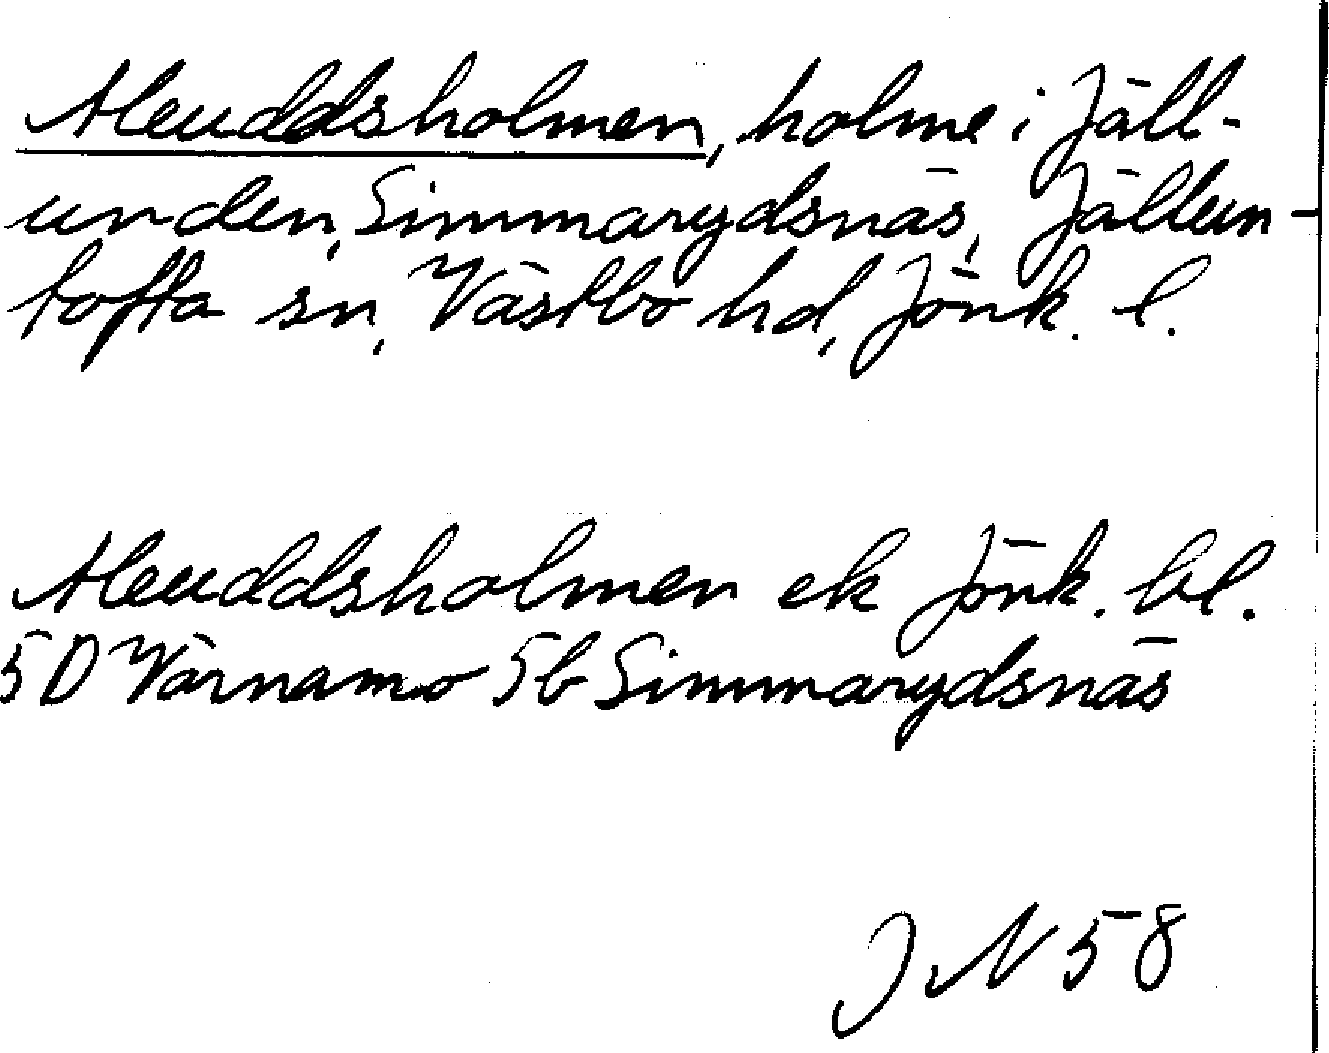 Aleuddsholmen, holme i Jäll-
unden, Simmarydsnäs, Jällun-
tofta sn, Västbo hd, Jönk. l.
Aleuddsholmen ek Jönk. bl.
5D Värnamo 5b Simmarydsnäs
JN 58